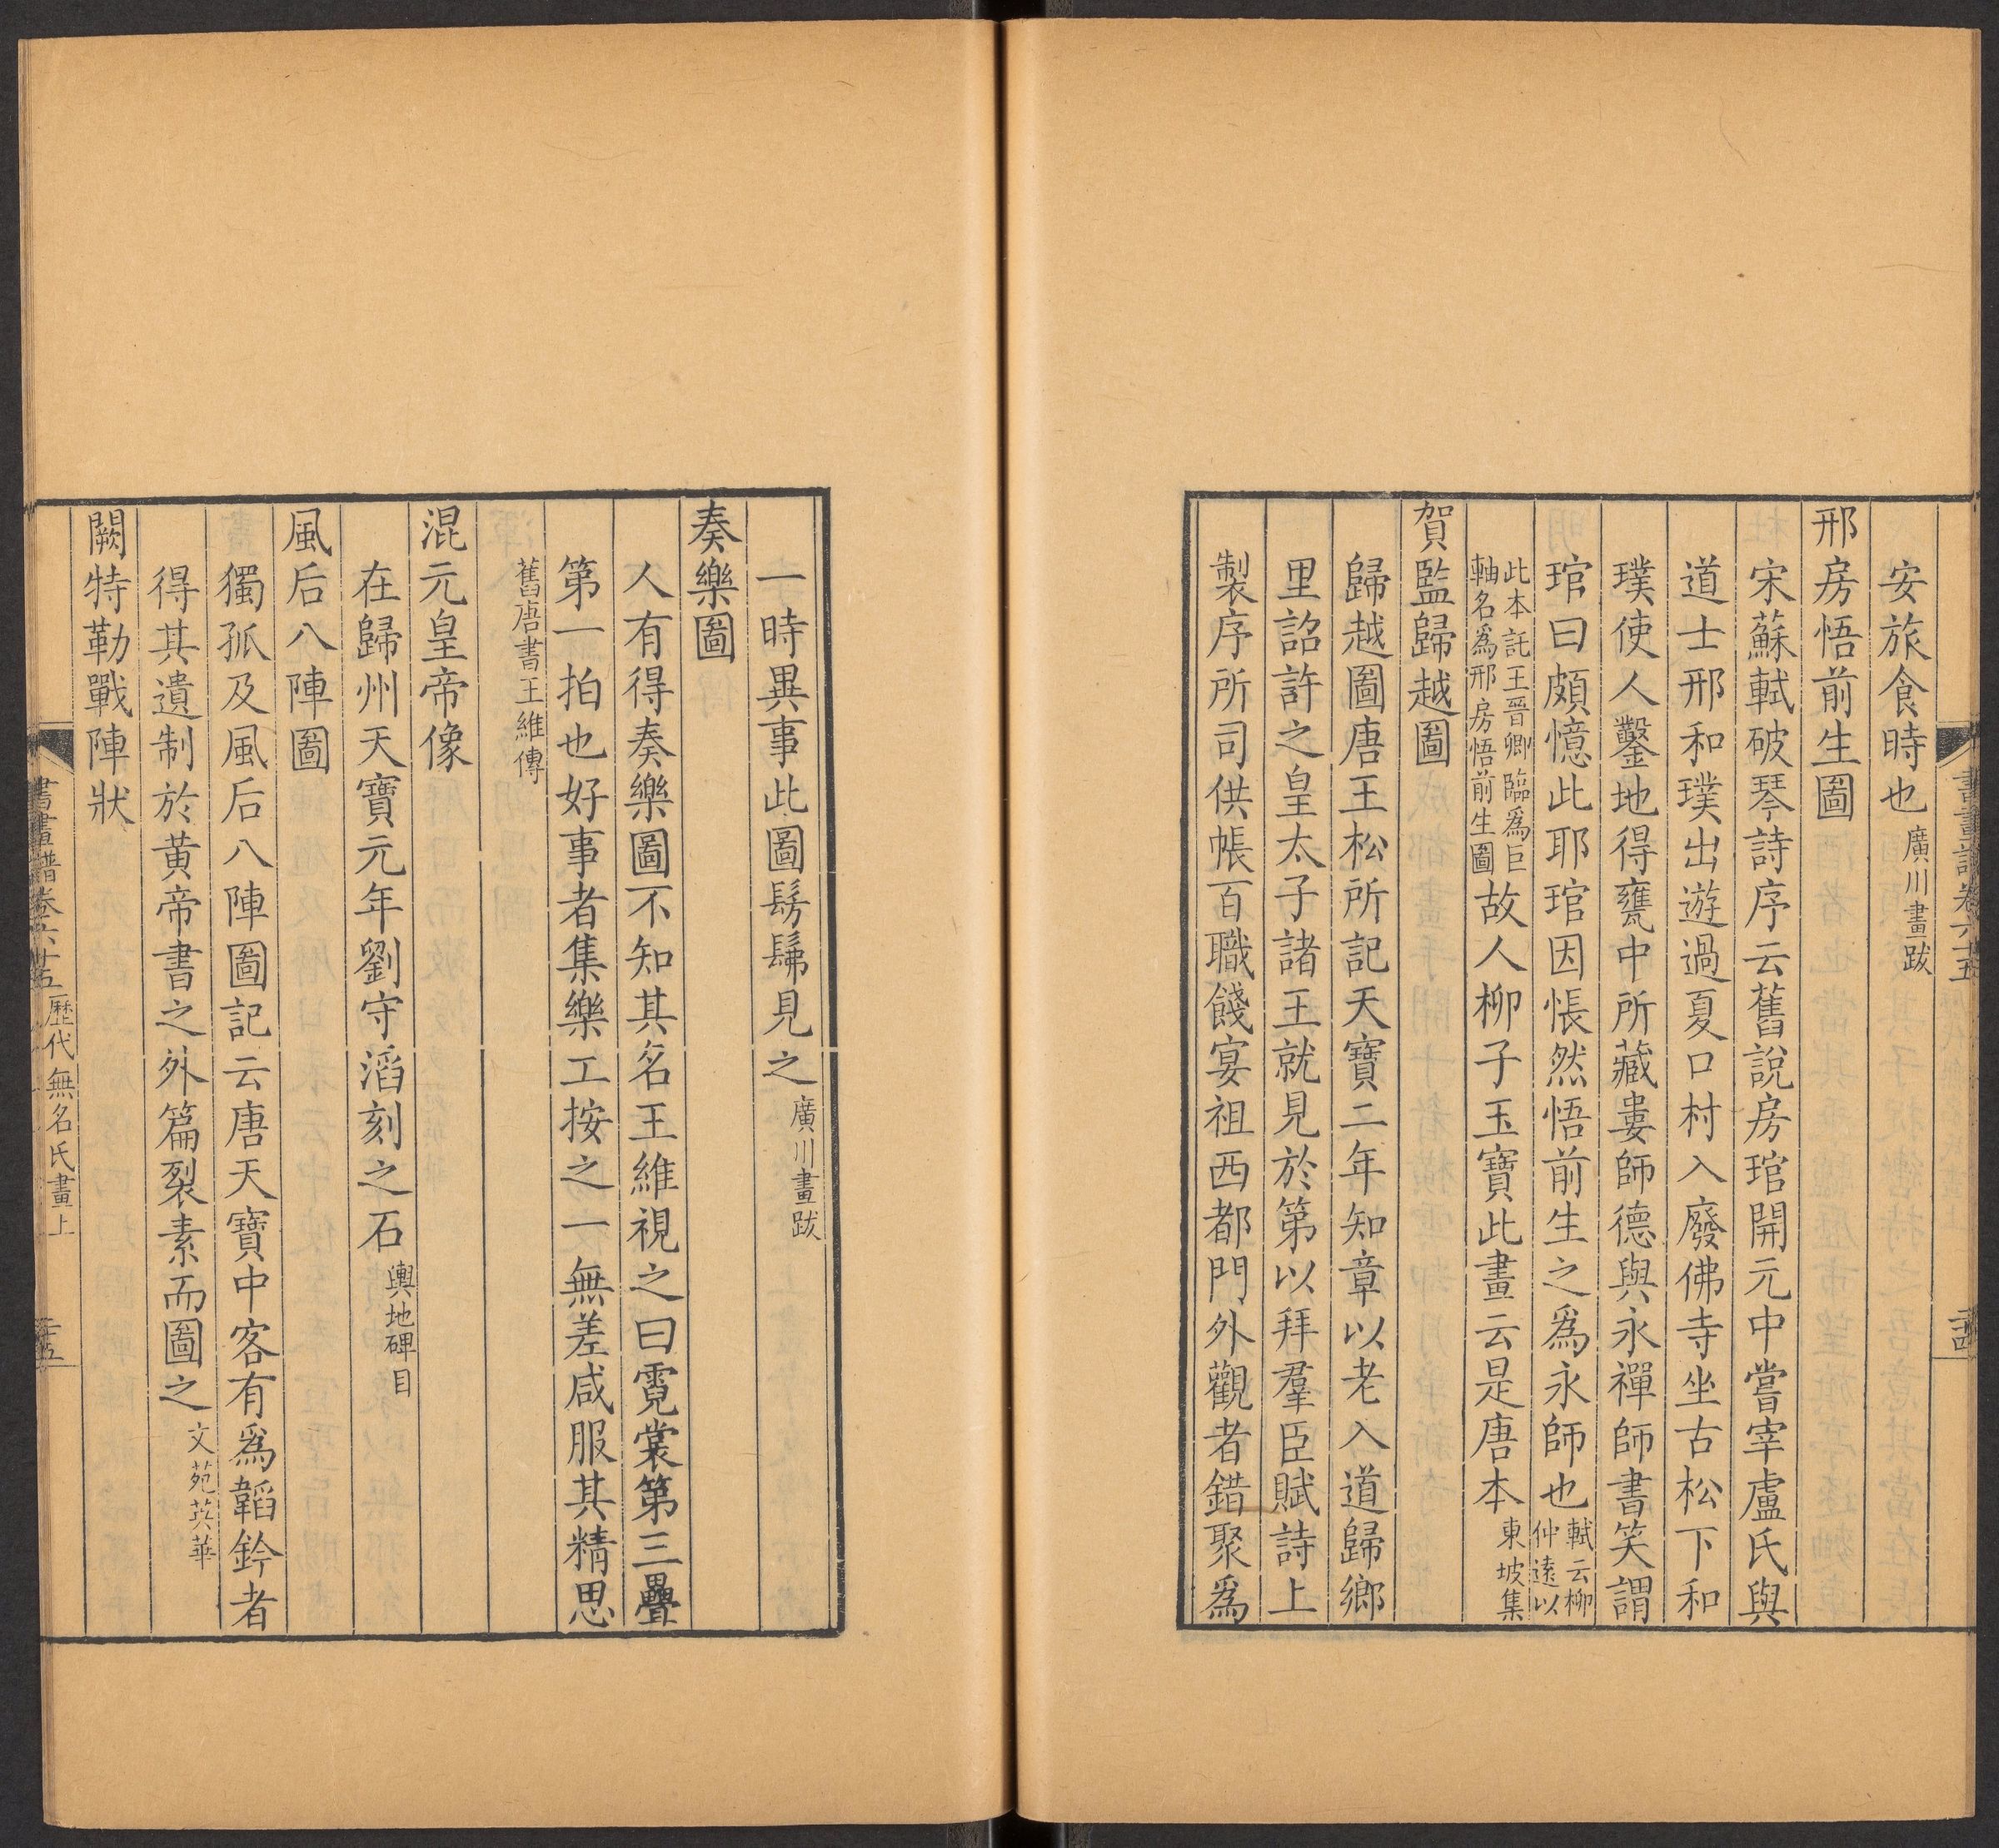 安旅食時也廣川畫跋
邢房悟前生圖
宋蘇軾破琴詩序云舊說房琯開元中嘗宰盧氏與
道士邢和璞出遊過夏口村入廢佛寺坐古松下和
璞使人鑿地得甕中所藏婁師德與永禪師書笑謂
琯曰頗憶此耶琯因悵然悟前生之爲永師也軾云柳仲遠以
此本託王晉卿臨爲巨軸名爲邢房悟前生圖故人柳子玉寶此畫云是唐本東坡集
賀監歸越圖
歸越圖唐王松所記天寶二年知章以老入道歸鄉
里詔許之皇太子諸王就見於第以拜羣臣賦詩上
製序所司供帳百職餞宴祖西都門外觀者錯聚爲
書畫譜卷六十五
二十四
一時異事此圖髣髴見之廣川畫跋
奏樂圖
人有得奏樂圖不知其名王維視之曰霓裳第三疊
第一拍也好事者集樂工按之一無差咸服其精思
舊唐書王維傳
混元皇帝像
在歸州天寶元年劉守滔刻之石輿地碑目
風后八陣圖
獨孤及風后八陣圖記云唐天寶中客有爲韜鈐者
得其遺制於黃帝書之外篇裂素而圖之文苑英華
闕特勒戰陣狀
書畫譜卷六十五
歷代無名氏畫上
二十五